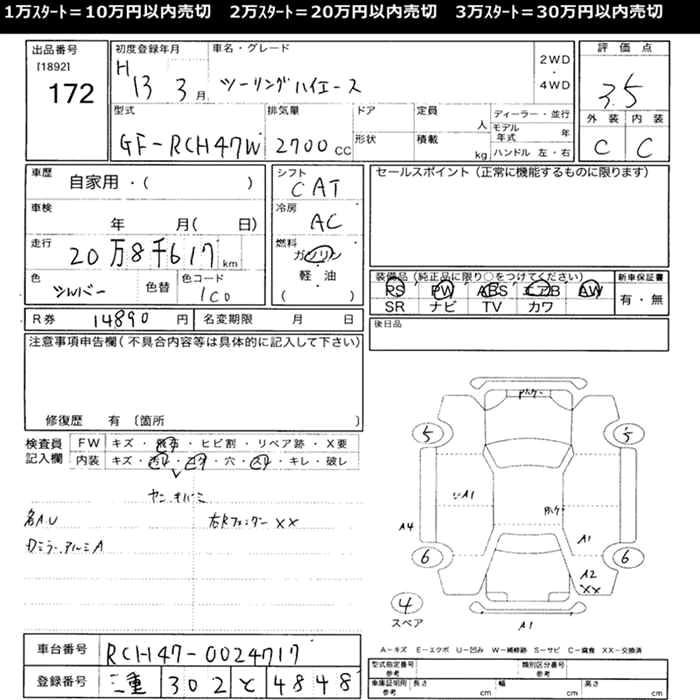 1万ｽﾀｰﾄ＝10万円以内売切　2万ｽﾀｰﾄ＝20万円以内売切　3万ｽﾀｰﾄ＝30万円以内売切
出品番号
[1892]
172
初度登録年月
H 13 3月
車名・グレード
ツーリングハイエース
2WD
・
4WD
評価点
3.5
外装 内装
C C
型式
GF-RCH47W
排気量
2700 CC
ドア
形状
定員
人
積載
kg
ディーラー・並行
モデル年式 年
ハンドル 左・右
車歴
自家用・( )
車検
年 月( 日)
走行
20万8千617 km
色
シルバー
色替
色コード
1C0
シフト
CAT
冷房
AC
燃料
ガソリン
軽・油
( )
セールスポイント（正常に機能するものに限ります）
装備品（純正品に限り○をつけてください）
PS PW ABS エアB AW
SR ナビ TV カワ
新車保証書
有・無
後日品
R券 14890円
名変期限 月 日
注意事項申告欄（不具合内容等は具体的に記入して下さい）
修復歴 有 〔箇所 〕
検査員
記入欄
FW キズ・飛石・ヒビ割・リペア跡・X要
内装 キズ・汚レ・コゲ・穴・スレ・キレ・破レ
各A U
右Rフェンダー XX
カミラー、アルミA
5 5
6 6
4
スペア
A1
A4
A1
A2
XX
A1
A－キズ　E－エクボ　U－凹み　W－補修跡　S－サビ　C－腐食　XX－交換済
車台番号
RCH47-0024717
登録番号
三重 302 と 4848
型式指定番号
参考
類別区分番号
参考
車庫証明用
参考
長さ cm
幅 cm
高さ cm